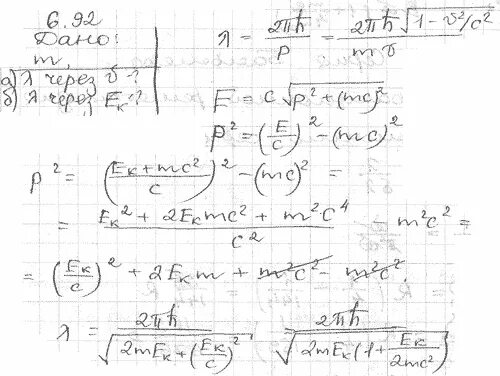 6.92
Дано:
m,
а) λ через v?
б) λ через Eк?
λ = 2πħ/p = 2πħ√(1 - v²/c²)/(mv)
E = c√(p² + (mc)²)
p² = (E/c)² - (mc)²
p² = ((Eк + mc²)/c)² - (mc)² =
= (Eк² + 2Eкmc² + m²c⁴)/c² - m²c² =
= (Eк/c)² + 2Eкm + m²c² - m²c²
λ = 2πħ/√(2mEк + (Eк/c)²) = 2πħ/√(2mEк(1 + Eк/(2mc²)))